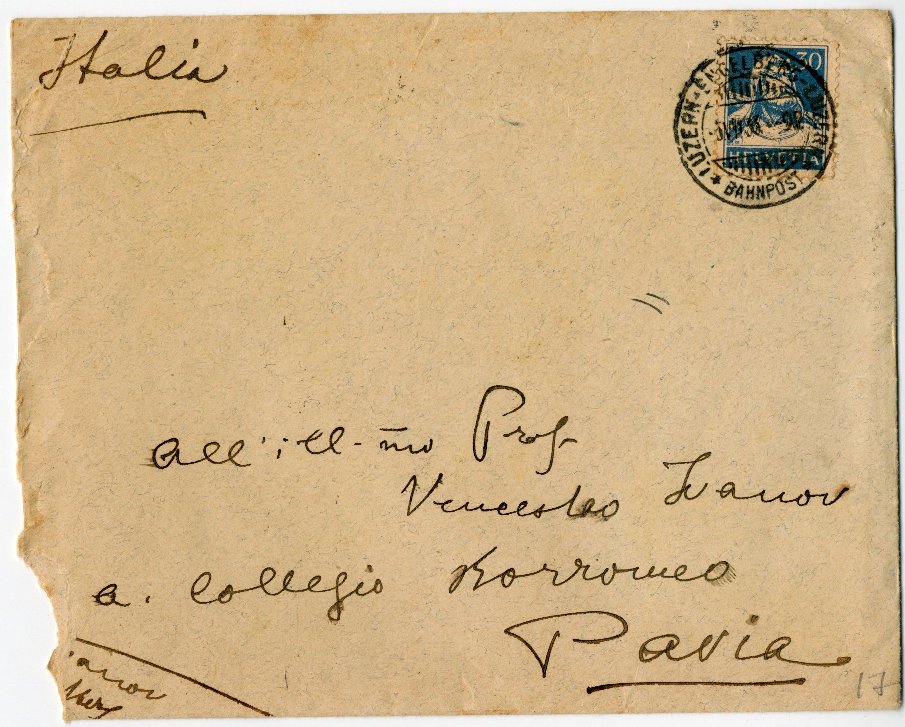 Italia
30
LUZERN-ENGELBERG-LUZERN
HELVETIA
* BAHNPOST *
All' ill-mo Prof.
Venceslao Ivanov
a. Collegio Borromeo
Pavia
17